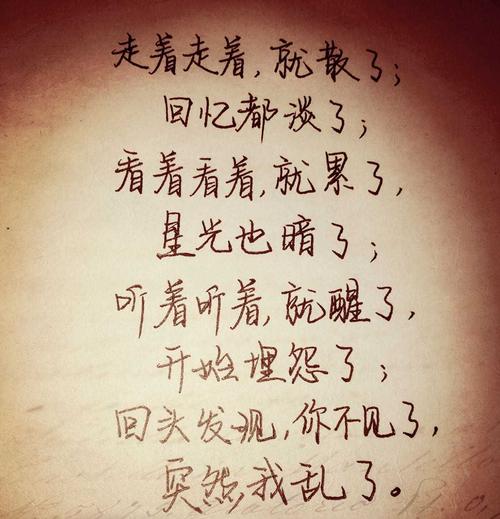 走着走着，就散了；
回忆都谈了；
看着看着，就累了，
星光也暗了；
听着听着，就醒了，
开始埋怨了；
回头发现，你不见了，
突然我乱了。